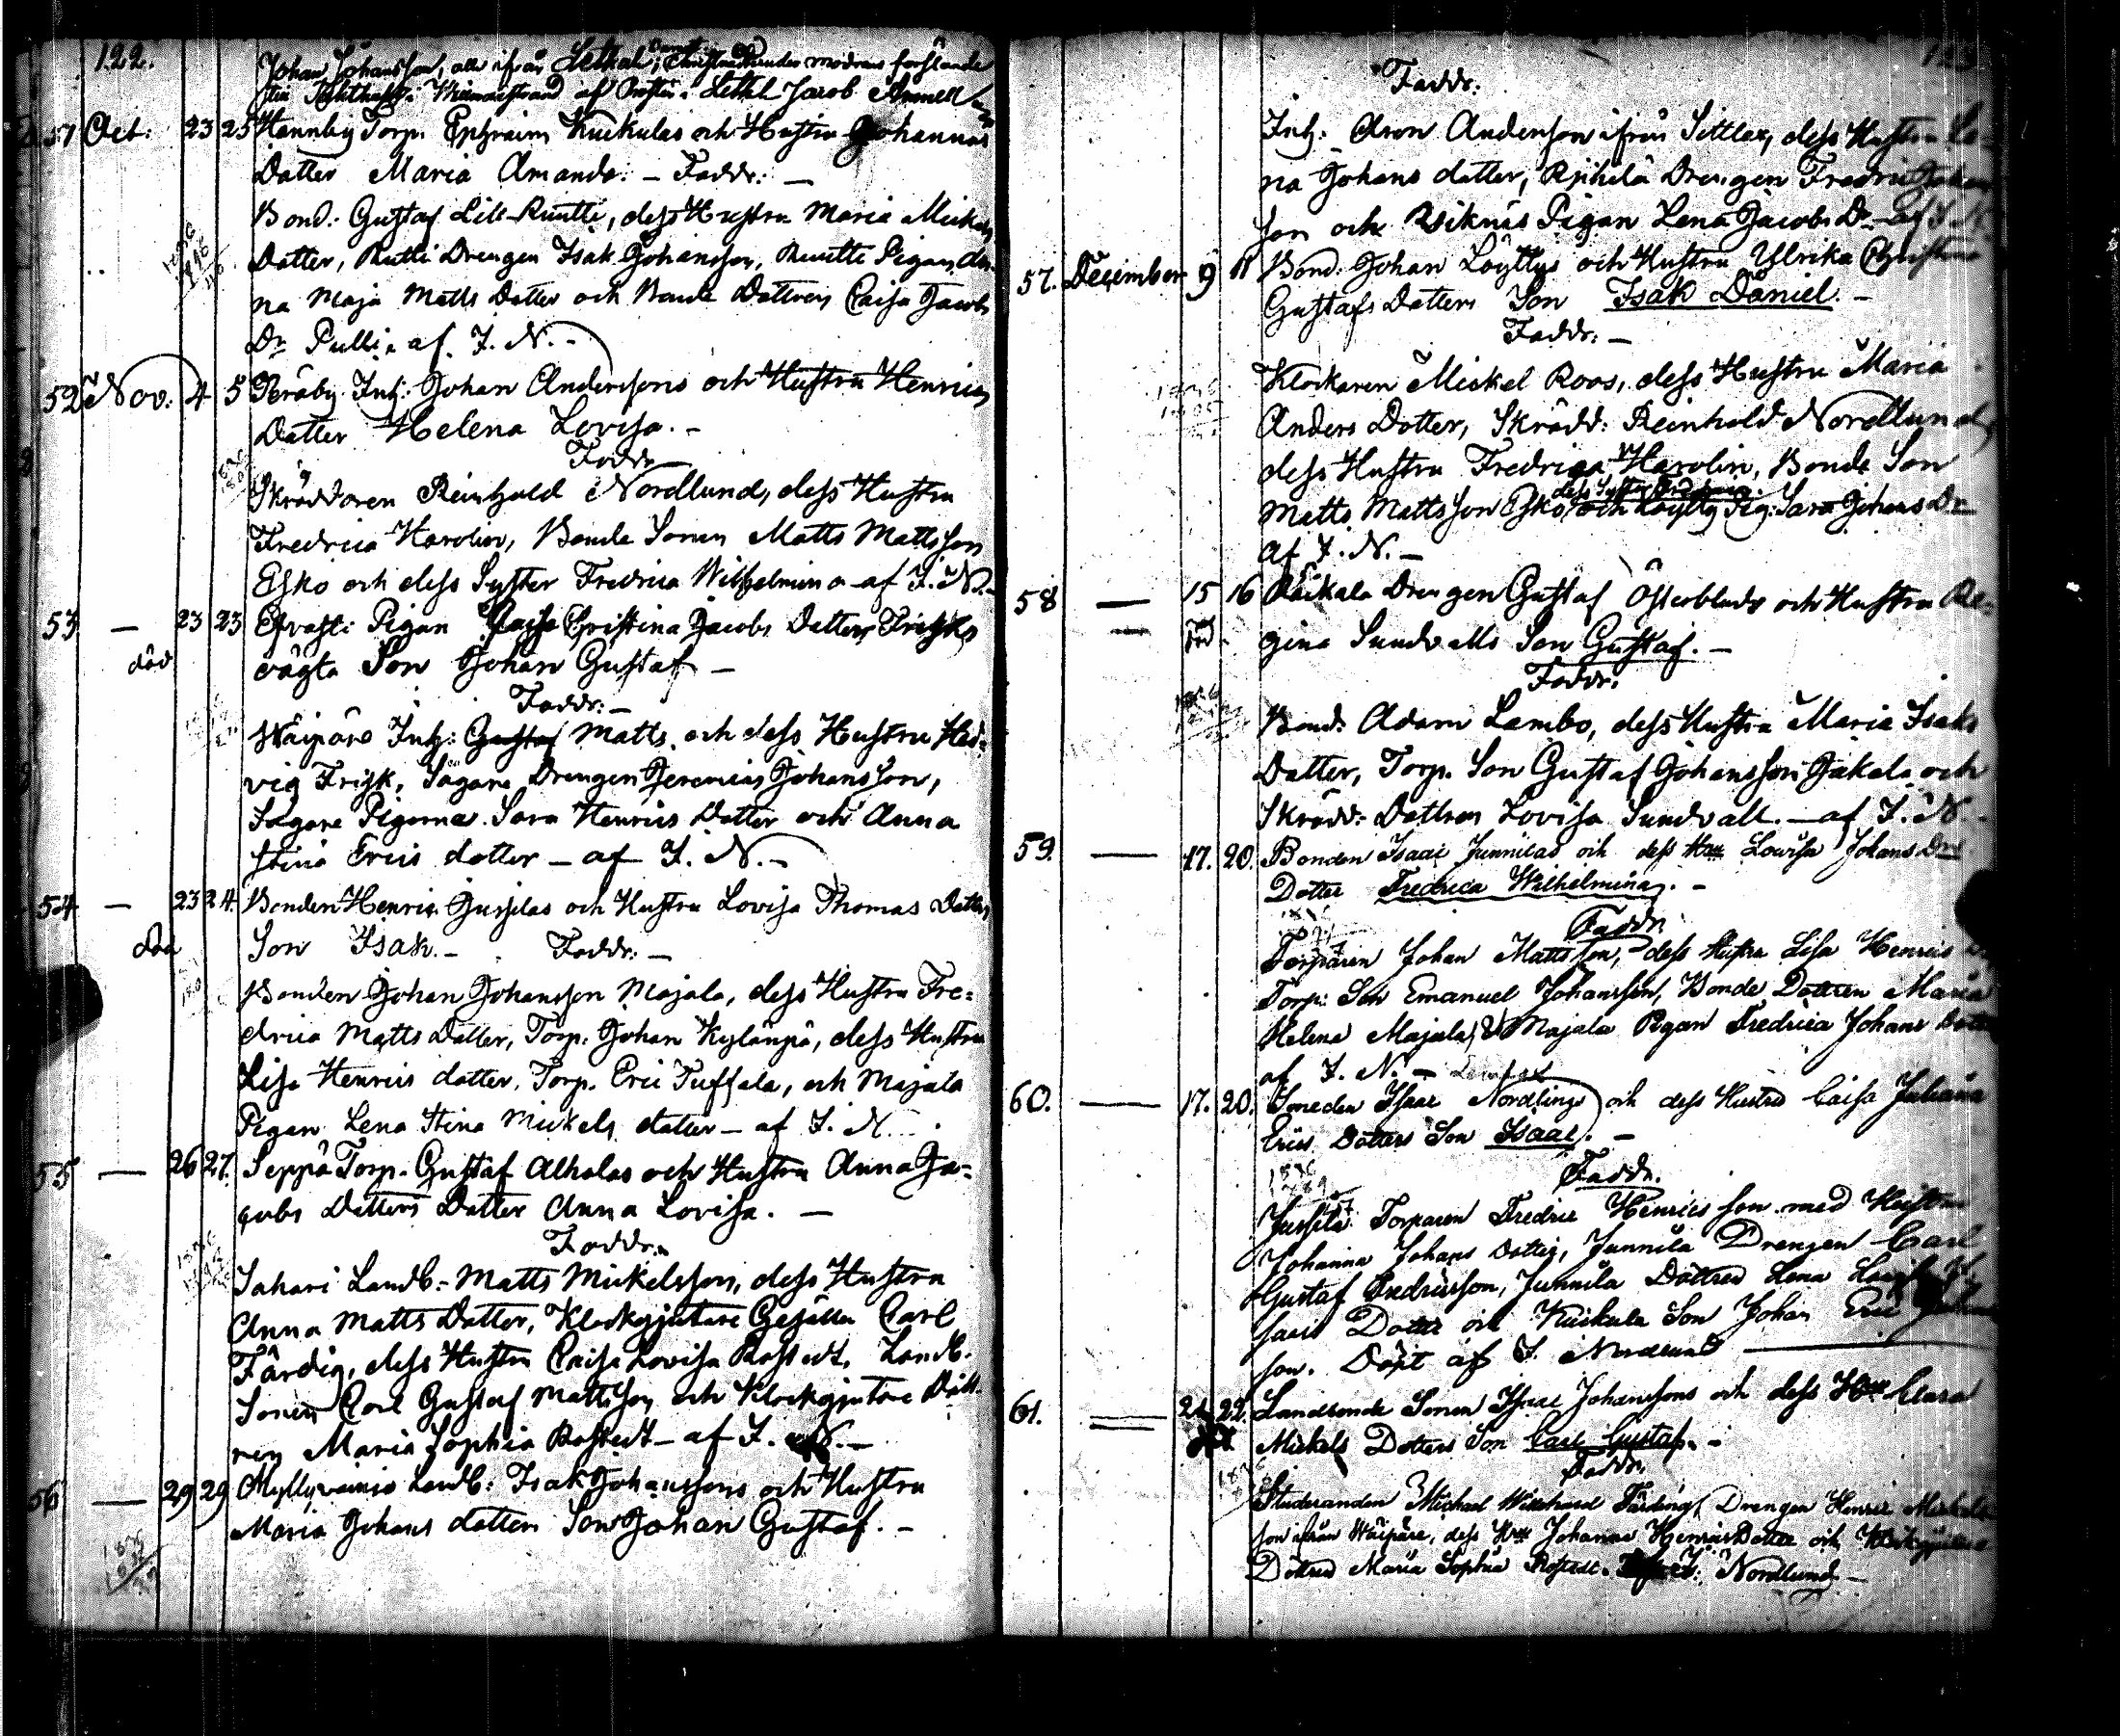 122.
Johan Johansson, alla ifrån Letkala, Christnades under modrensförstånde
af Jacob
51 Oct: 23 25 Hannby Torp. Ephraim Kuckulas och Hustru Johannas
Datter Maria Amanda. – Faddr: –
Bond: Gustaf Lill-Ruutti, dess Hustru Maria Mickels
Datter, Rutti Drengen Isak Johansson, Ruutti Pigan An-
na Maja Matts Datter och Bonde Dattren Caisa Jacobs
Dr Pulli. af J. N. –
52 Nov: 4 5 Peräby Inh: Johan Anderssons och Hustru Henrics
Datter Helena Lovisa. –
Faddr
Skräddaren Reinhold Nordlund, dess Hustru
Fredrica Harolin, Bonde Sonen Matts Mattsson
Esko och dess Syster Fredrica Wilhelmina – af J. N. –
53 – 23 23 Pigan Caisa Christina Jacobs Datters Frisks
död oägta Son Johan Gustaf –
Faddr: –
Wäipäre Inh: Gustaf Matts och dess Hustru Hed-
vig Frisk, Sagare Drengen Jeremias Johansson,
Sagare Pigorna Sara Henrics Datter och Anna
Stina Erics dotter – af J. N. –
54 – 23 24. Bonden Henric Jussilas och Hustru Lovisa Thomas Datters
död Son Isak. – Faddr: –
Bonden Johan Johansson Majala, dess Hustru Fre-
drica Matts Datter, Torp. Johan Kylänpä, dess Hustru
Lisa Henrics dotter, Torp. Eric Tuffala, och Majala
Pigan Lena Stina Mickels datter – af J. N.
55 – 26 27. Seppä Torp. Gustaf Alholas och Hustru Anna Ja-
cobs Datters Datter Anna Lovisa. –
Faddr:
Sahari Landb. Matts Mickelsson, dess Hustru
Anna Matts Datter, Klockgjutare Gesällen Carl
Färdig, dess Hustru Caisa Lovisa Rostedt, Landb.
Sonen Carl Gustaf Mattsson och Klockgjutare Dått-
ren Maria Sophia Rostedt – af J. N. –
56 – 29 29 Myllyvainio Landb: Isak Johanssons och Hustru
Maria Johans dotters Son Johan Gustaf. –
Faddr:
Inh: Aron Andersson ifrån Sittlax, dess Hustru Le-
na Johans datter, Drengen Fredric Johans
son och Pigan Lena Jacobs Dr – af J N
57. December 9 11 Bond: Johan Löyttys och Hustru Ulrika Christina
Gustafs Datters Son Isak Daniel. –
Faddr: –
Klockaren Mickel Roos, dess Hustru Maria
Anders Dotter, Skrädd: Reinhold Nordlund
dess Hustru Fredrica Harolin, Bonde Son
Matts Mattsson Esko, och Löytty Pig: Sara Johans Dr
af J. N. –
58 – 15 16 Drengen Gustaf Österblads och Hustru Re-
död gina Sundvalls Son Gustaf. –
Faddr:
Bond: Adam Lambo, dess Hustru Maria Isaks
Datter, Torp. Son Gustaf Johansson Jakala och
Skrädd: Dattren Lovisa Sundvall. – af J. N. –
59. – 17. 20. Bonden Isaac Junnilas och dess Hu Lovisa Johans Drs
Dotter Fredrica Wilhelmina. –
Faddr.
Torparen Johan Mattsson, dess Hustru Lisa Henrics
Torp: Son Emanuel Johansson, Bonde Dottren Maria
Helena Majala, & Majala Pigan Fredrica Johans Dotter
af J. N. –
60. – 17. 20. Smeden Isaac Nordlings och dess Hustru Caisa Juliana
Erics Dotters Son Isaac. –
Faddr.
Jussila Torparen Fredric Henricsson med Hustru
Johanna Johans Dotter, Junnila Drengen Carl
Gustaf Fredricsson, Junnila Dottren Lena
Dotter och Kuckula Son Johan Eric
son. Döpt af J. Nordlund
61. – 21 22. Landbonde Sonen Isaac Johanssons och dess Hu Clara
Mickels Dotters Son Carl Gustaf. –
Faddr.
Studeranden Michael Färding, Drengen Henric Mickels
son ifrån Wäipäre, dess Hu Johanna Henrics Dotter och Klockgjutare
Dottren Maria Sophia Rostedt. J: Nordlund. –